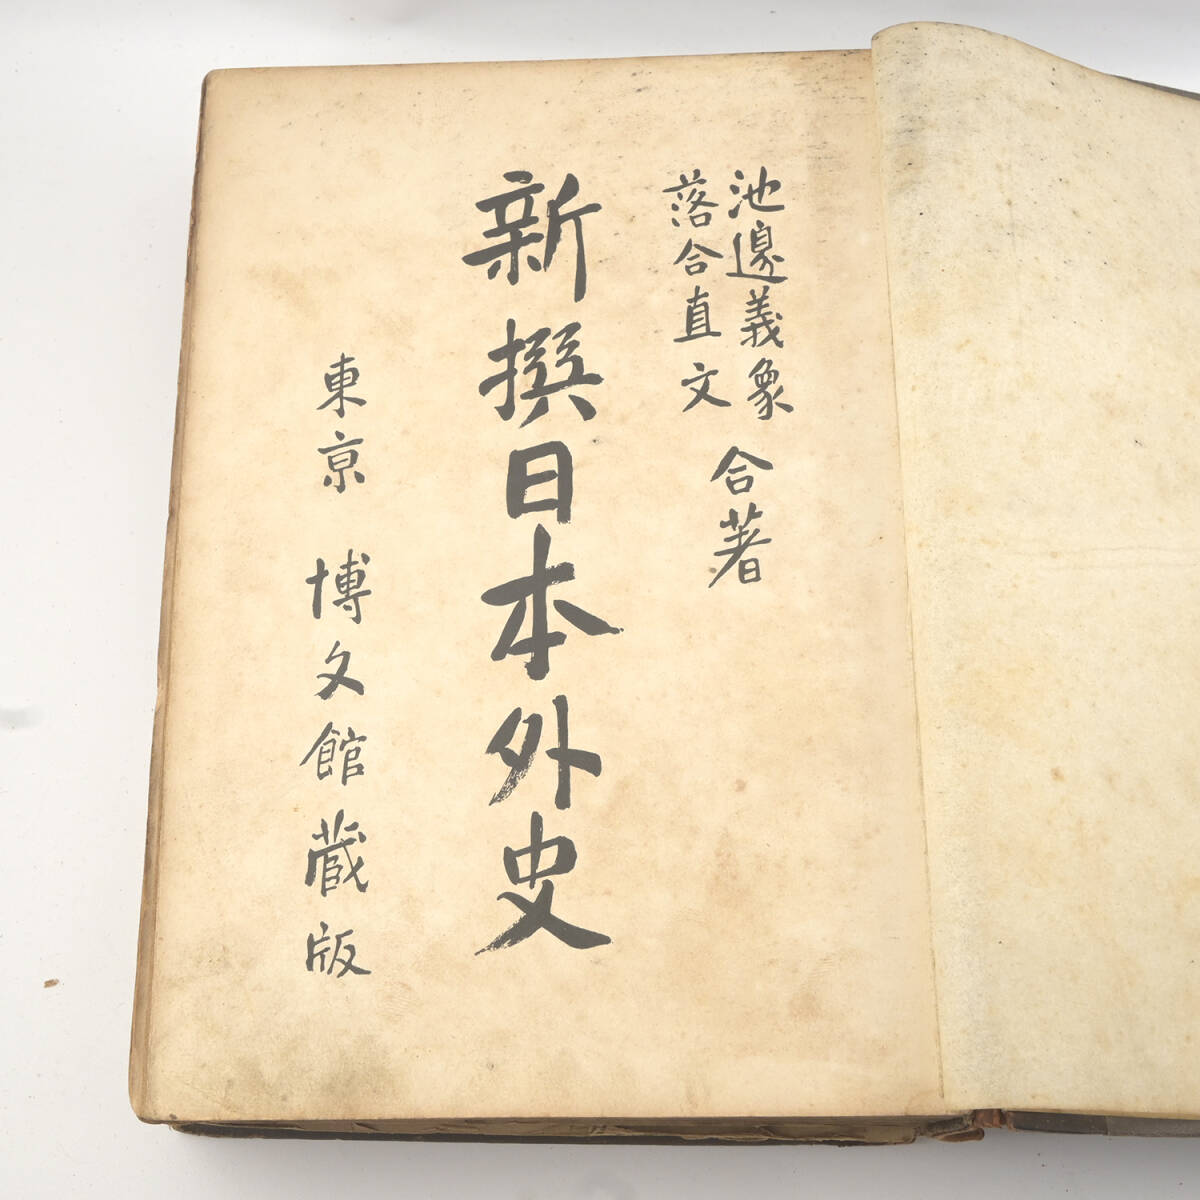 池邊義象
落合直文
合著
新撰日本外史
東京 博文館蔵版